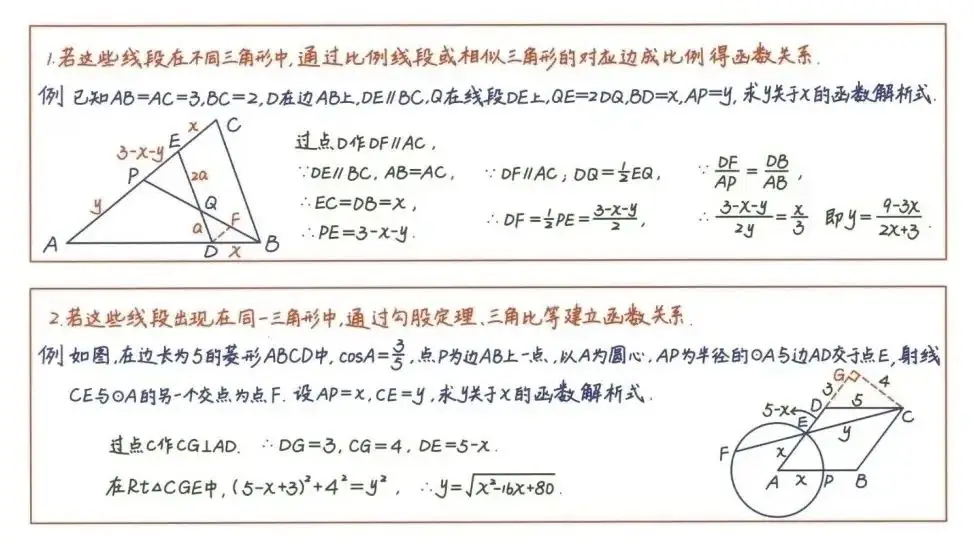 1.若这些线段在不同三角形中,通过比例线段或相似三角形的对应边成比例得函数关系.
例 已知AB=AC=3,BC=2,D在边AB上,DE∥BC,Q在线段DE上,QE=2DQ,BD=x,AP=y,求y关于x的函数解析式.
x
C
E
3-x-y
P
2a
y
Q
a
F
A
D
x
B
过点D作DF∥AC,
∵DE∥BC, AB=AC,
∴EC=DB=x,
∴PE=3-x-y.
∵DF∥AC;DQ=1/2EQ,
∴DF=1/2PE=(3-x-y)/2,
∵DF/AP=DB/AB,
∴(3-x-y)/2y=x/3 即y=(9-3x)/(2x+3).
2.若这些线段出现在同一三角形中,通过勾股定理、三角比等建立函数关系.
例 如图,在边长为5的菱形ABCD中,cosA=3/5,点P为边AB上一点,以A为圆心,AP为半径的⊙A与边AD交于点E,射线
CE与⊙A的另一个交点为点F.设AP=x,CE=y,求y关于x的函数解析式.
过点C作CG⊥AD. ∴DG=3,CG=4,DE=5-x.
在Rt△CGE中,(5-x+3)²+4²=y², ∴y=√(x²-16x+80).
G
3
4
5-x
D
5
C
E
y
F
x
A
x
P
B